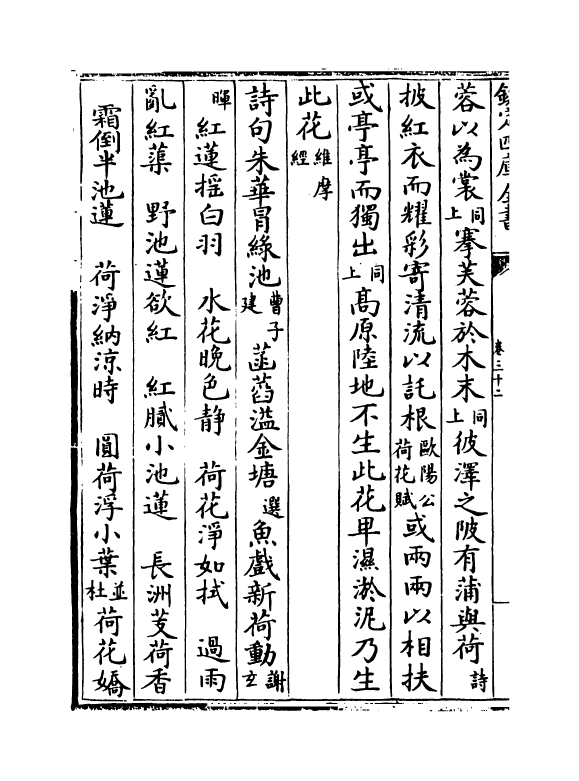 欽定四庫全書
卷三十二
蓉以為裳同上搴芙蓉於木末同上彼澤之陂有蒲與荷詩
披紅衣而耀彩寄清流以託根歐陽公荷花賦或兩兩以相扶
或亭亭而獨出同上高原陸地不生此花甲濕淤泥乃生
此花維摩經
詩句朱華冒綠池曹子建菡萏溢金塘選魚戲新荷動謝玄
暉紅蓮揺白羽 水花晚色靜 荷花淨如拭 過雨
亂紅蕖 野池蓮欲紅 紅膩小池蓮 長洲芰荷香
霜倒半池蓮 荷淨納凉時 圓荷浮小葉並杜荷花嬌